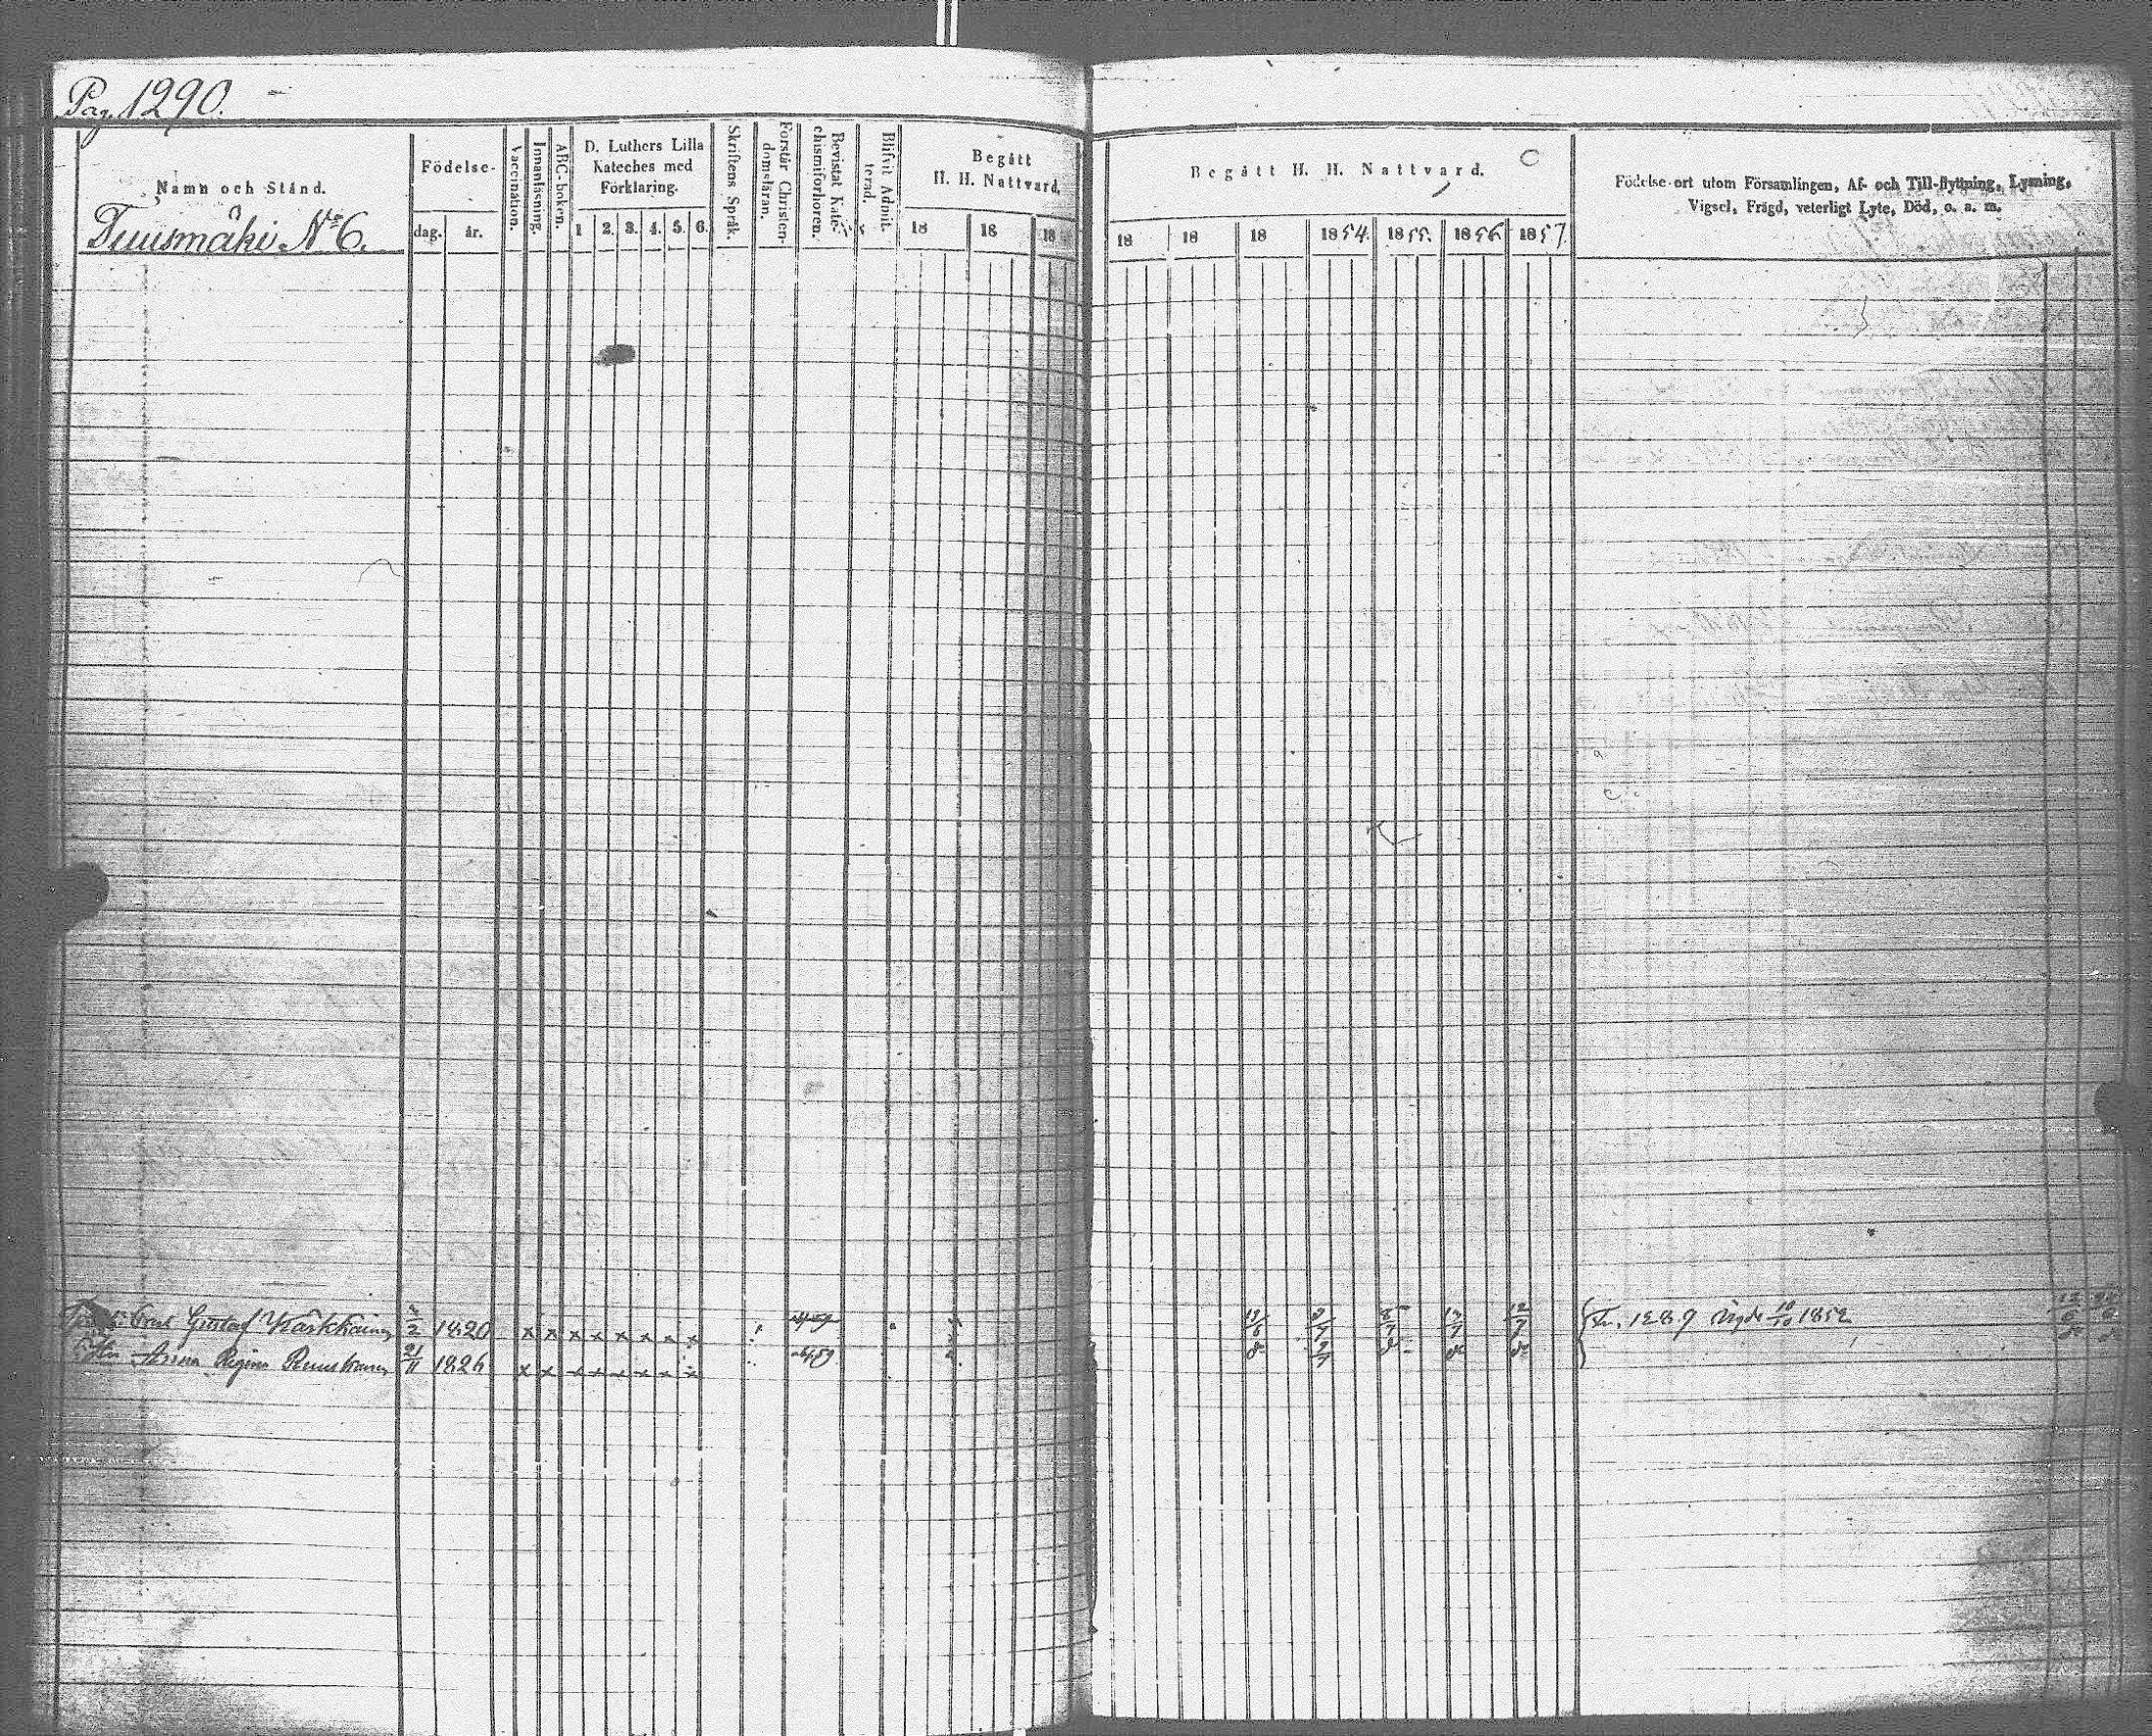 Pag. 1290.
Namn och Stånd.
Tuusmäki N:o 6.
Födelse-
dag. år.
Vaccination.
Innanläsning.
ABC-boken.
D. Luthers Lilla
Kateches med
Förklaring.
1 2. 3. 4. 5. 6.
Skriftens Språk.
Förstår Christen-
domsläran.
Bevistat Kate-
chismiförhören.
Blifvit Admit-
terad.
Begått
H. H. Nattvard.
18 18 18
Begått H. H. Nattvard.
18 18 18 1854. 1855. 1856. 1857.
Födelse-ort utom Församlingen, Af- och Till-flyttning, Lysning,
Vigsel, Frägd, veterligt Lyte, Död, o. a. m.
Carl Gustaf Kärkkäinen 2 1820 x x x x x x x x 11/6 1289 10/10 1852
Anna Regina 21/11 1826 x x x x x x x x